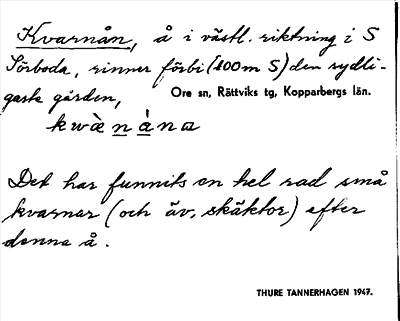 Kvarnån, å i västl. riktning i S
Sörboda, rinner förbi (100 m S) den sydli-
gaste gården, Ore sn, Rättviks tg, Kopparbergs län.
kwὰnὰna
Det har funnits en hel rad små
kvarnar (och äv. skäktor) efter
denna å.
THURE TANNERHAGEN 1947.